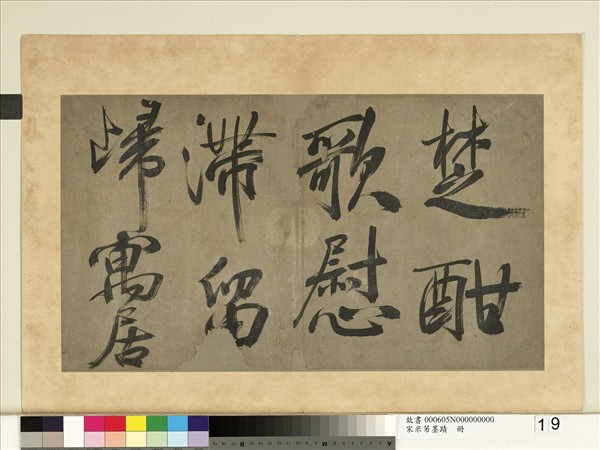 楚酣
歌慰
滯留
歸寓居
故書 000605N000000000
宋米芾墨蹟 冊
19